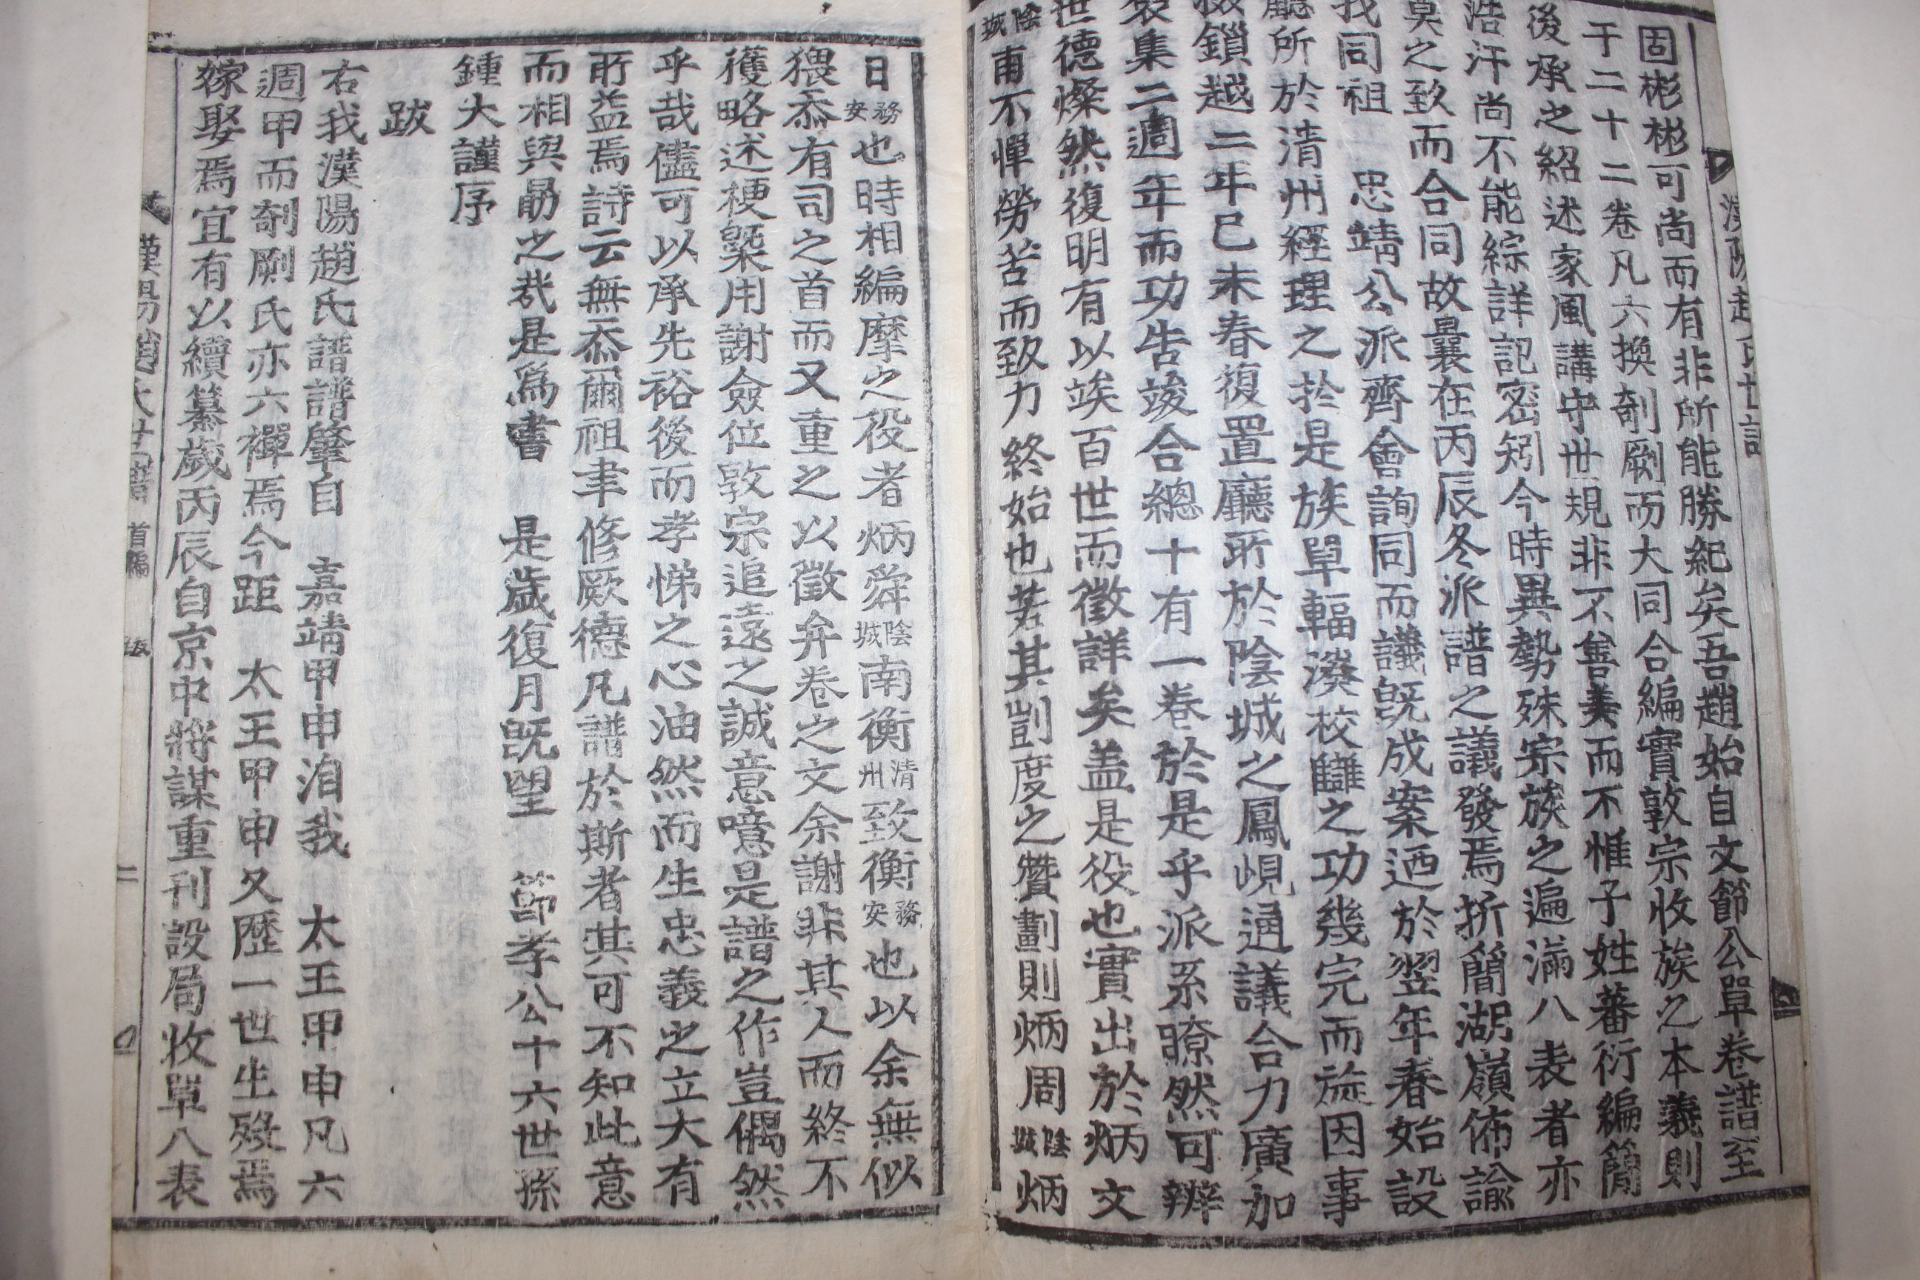 固彬彬可尚而有非所能勝紀矣吾趙始自文節公單卷譜至
于二十二卷凡六換剞劂而大同合編實敦宗收族之本義則
後承之紹述家風講守世規非不雋美而不惟子姓蕃衍編簡
浩汗尚不能綜詳記密矧今時異勢殊宗族之遍滿八表者亦
莫之致而合同故曩在丙辰冬派譜之議發焉折簡湖嶺佈諭
我同祖 忠靖公派齊會詢同而議旣成案迺於翌年春始設
廳所於清州經理之於是族單輻湊校讎之功幾完而旋因事
掇鎖越二年己未春復置廳所於陰城之鳳峴通議合力廣加
裒集二週年而功告竣合總十有一卷於是乎派系暸然可辨
世德燦然復明有以竢百世而徵詳矣盖是役也實出於炳文
陰城南不憚勞苦而致力終始也若其剴度之贊劃則炳周陰城炳
日務安也時相編摩之役者炳舜陰城南衡清州致衡務安也以余無似
猥忝有司之首而又重之以徵弁卷之文余謝非其人而終不
獲略述梗槩用謝僉位敦宗追遠之誠意噫是譜之作豈偶然
乎哉儘可以承先裕後而孝悌之心油然而生忠義之立大有
所益焉詩云無忝爾祖聿修厥德凡譜於斯者其可不知此意
而相與勗之哉是爲書 是歲復月旣望 節孝公十六世孫
鍾大謹序
跋
右我漢陽趙氏譜譜肇自 嘉靖甲申洎我 太王甲申凡六
週甲而剞劂氏亦六禪焉今距 太王甲申又歷一世生歿焉
嫁娶焉宜有以續纂歲丙辰自京中將謀重刊設局收單八表
漢陽趙氏世譜 首編 跋 二